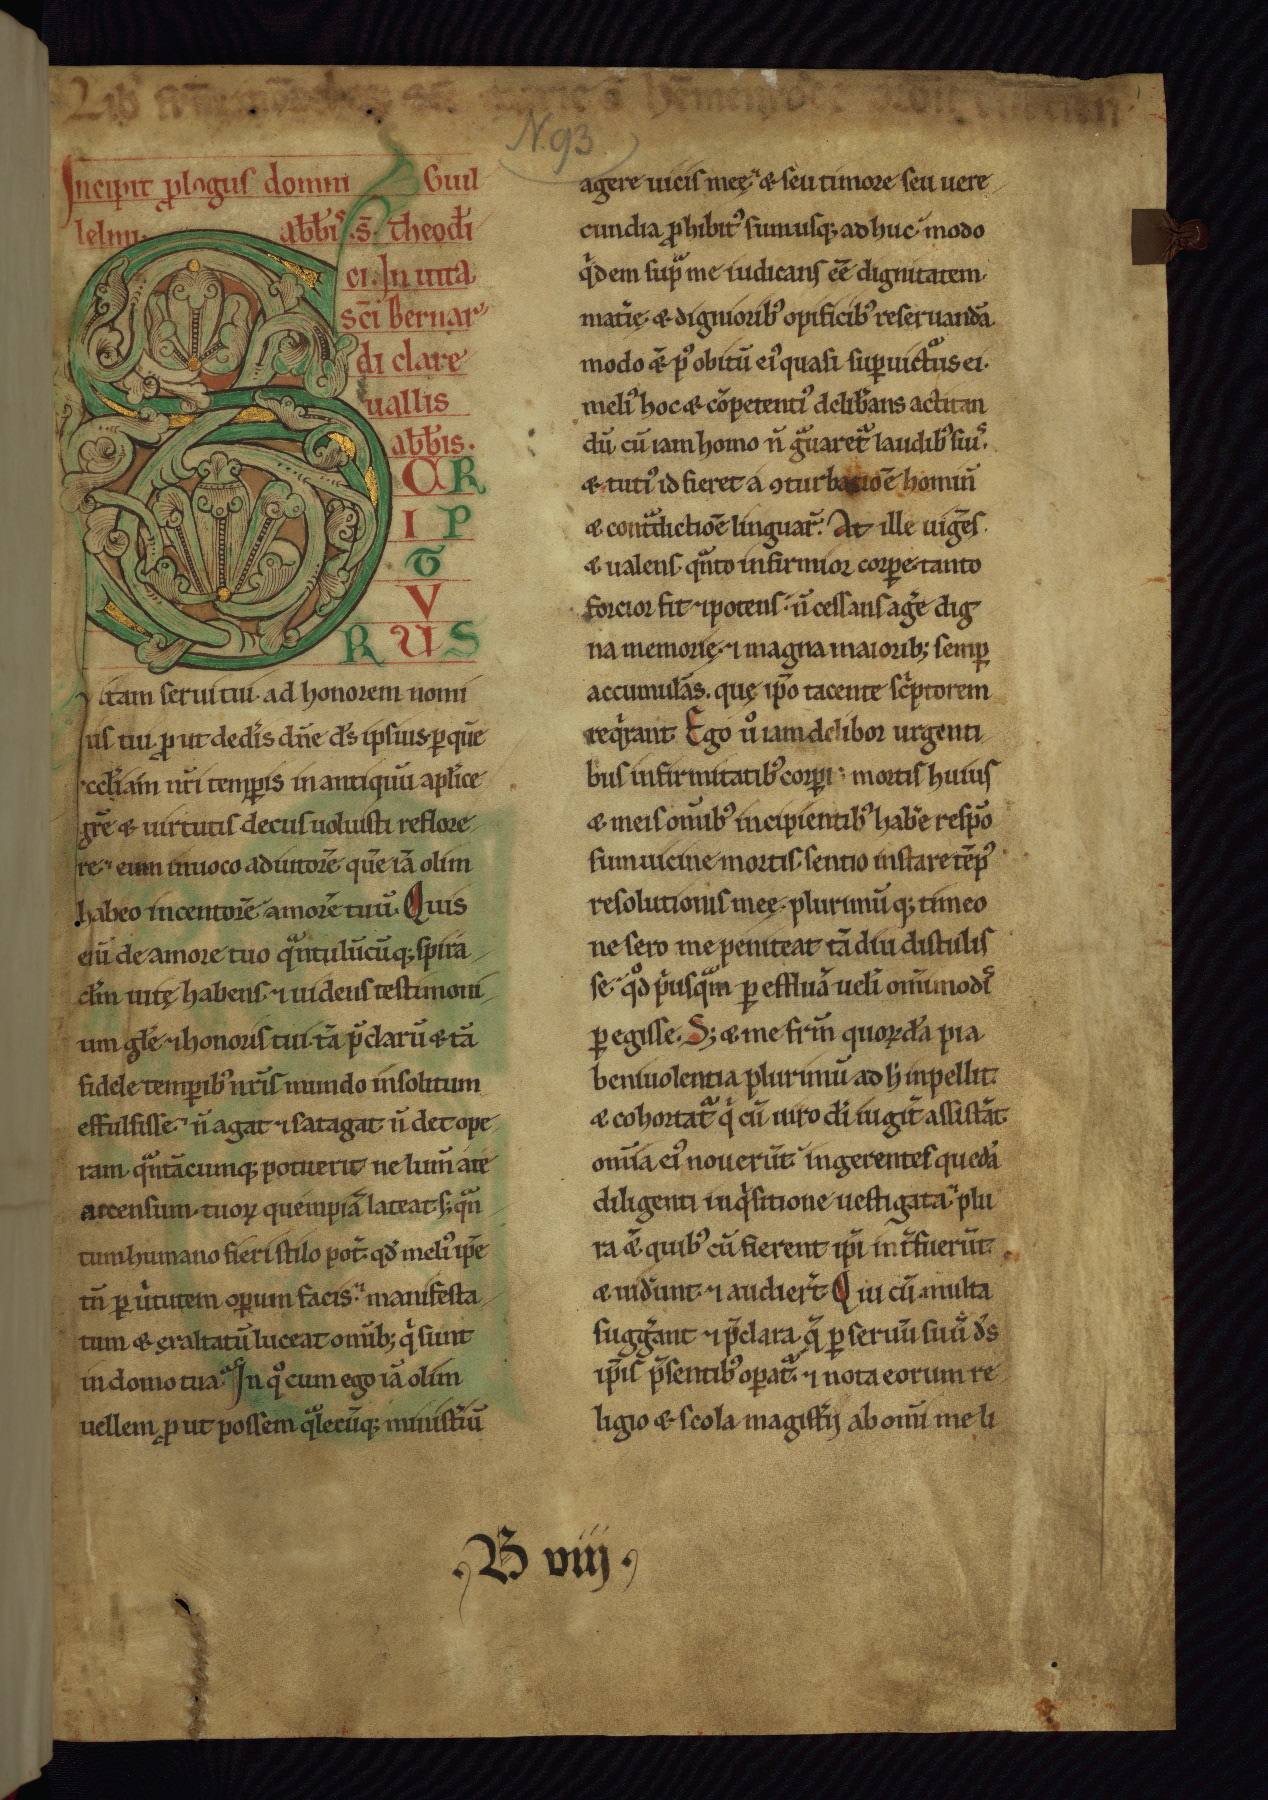 N. 93
Incipit p̱logus domni Guil
lelmi abb̅is. s̅. theod̅i
ci. In uita
sc̅i Bernar
di clare
uallis
abb̅is.
S CR
I P
T
V
R U S
itam serui tui. ad honorem nomi
nis tui. ꝓ ut dedis dn̅e ds̅ ipsius. ꝑ que̅
eccl̅iam nr̅i temꝑis in antiquu̅ apl̅ice
gr̅e & uirtutis decus uoluisti reflore
re. eum inuoco adiutore̅ que̅ ia̅ olim
habeo incentore̅ amore̅ tuu̅. Quis
eni̅ de amore tuo qͣntulu̅cu̅q; spira
cl̅m uitę habens. ⁊ uidens testimoni
um gl̅e. ⁊ honoris tui. ta̅ p̅claru̅ & ta̅
fidele temꝑibꝰ nr̅is mundo insolitum
effulsisse. n̅ agat ⁊ satagat n̅ det ope
ram qͣnta̅cumq; potuerit ne lum̅ a te
accensum. tuoꝝ quempia̅ lateat. s; qͣn
tum humano fieri stilo pot̅. qd̅ meliꝰ ip̅e
tn̅ ꝑ u̓tutem oꝑum facis. manifesta
tum & exaltatu̅ luceat omnib; qͥ sunt
in domo tua. In qͦ cum ego ia̅ olim
uellem ꝓ ut possem qͣlecu̅q; ministeriu̅
agere uicis meę. & seu timore seu uere
cundia ꝓhibitꝰ sum usq; ad huc. modo
qͥdem supͣ me iudicans ee̅ dignitatem
mat̅ię. & dignioribꝰ opificibꝰ reseruanda̅
modo & pꝰ obitu̅ eiꝰ quasi suꝑuicturus ei.
meliꝰ hoc & co̅petentiꝰ delib̅ans actitan
du̅. cu̅ iam homo n̅ gͣuaret̅ laudibꝰ suis.
& tutiꝰ id fieret a ꝯturbatio̅e homin̅
& cont̅dictio̅e linguar̅. At ille uige̅s.
& ualens. qͣnto infirmior corꝑe. tanto
forcior fit ⁊ potens. n̅ cessans ag̅e dig
na memorię. ⁊ magna maiorib; semꝑ
accumula̅s. quę ip̅o tacente scͥptorem
reqͥrant. Ego u̅o iam delibor urgenti
bus infirmitatibꝰ corꝑis mortis huius
& meis om̅ibꝰ incipientibꝰ habe̅ respo̅
sum uicine mortis. sentio instare te̅pꝰ
resolutionis meę. plurimu̅ q; timeo
ne sero me peniteat ta̅ diu distulis
se. qͦd pͥusqͣm ꝑ effluā ueli̅ omnimodis
ꝑegisse. S; & me fr̅m quoꝝda̅ pia
beniuolentia plurimu̅ ad h̅ inpellit.
& cohortat̅ qͥ cu̅ uiro di̅ iugit̅ assista̅t
om̅ia eiꝰ nouer̅t. ingerentes queda̅
diligenti inqͥsitione uestigata. plu
ra & quibꝰ cu̅ fierent ip̅i int̅fuer̅t.
& uid̅unt ⁊ audier̅t. Qui cu̅ multa
sugg̅ant ⁊ p̅clara. q̅ ꝑ seruu̅ suu̅ ds̅
ip̅is p̅sentibꝰ oꝑat̅. ⁊ nota eorum re
ligio & scola magistri ab om̅i me li
B viij